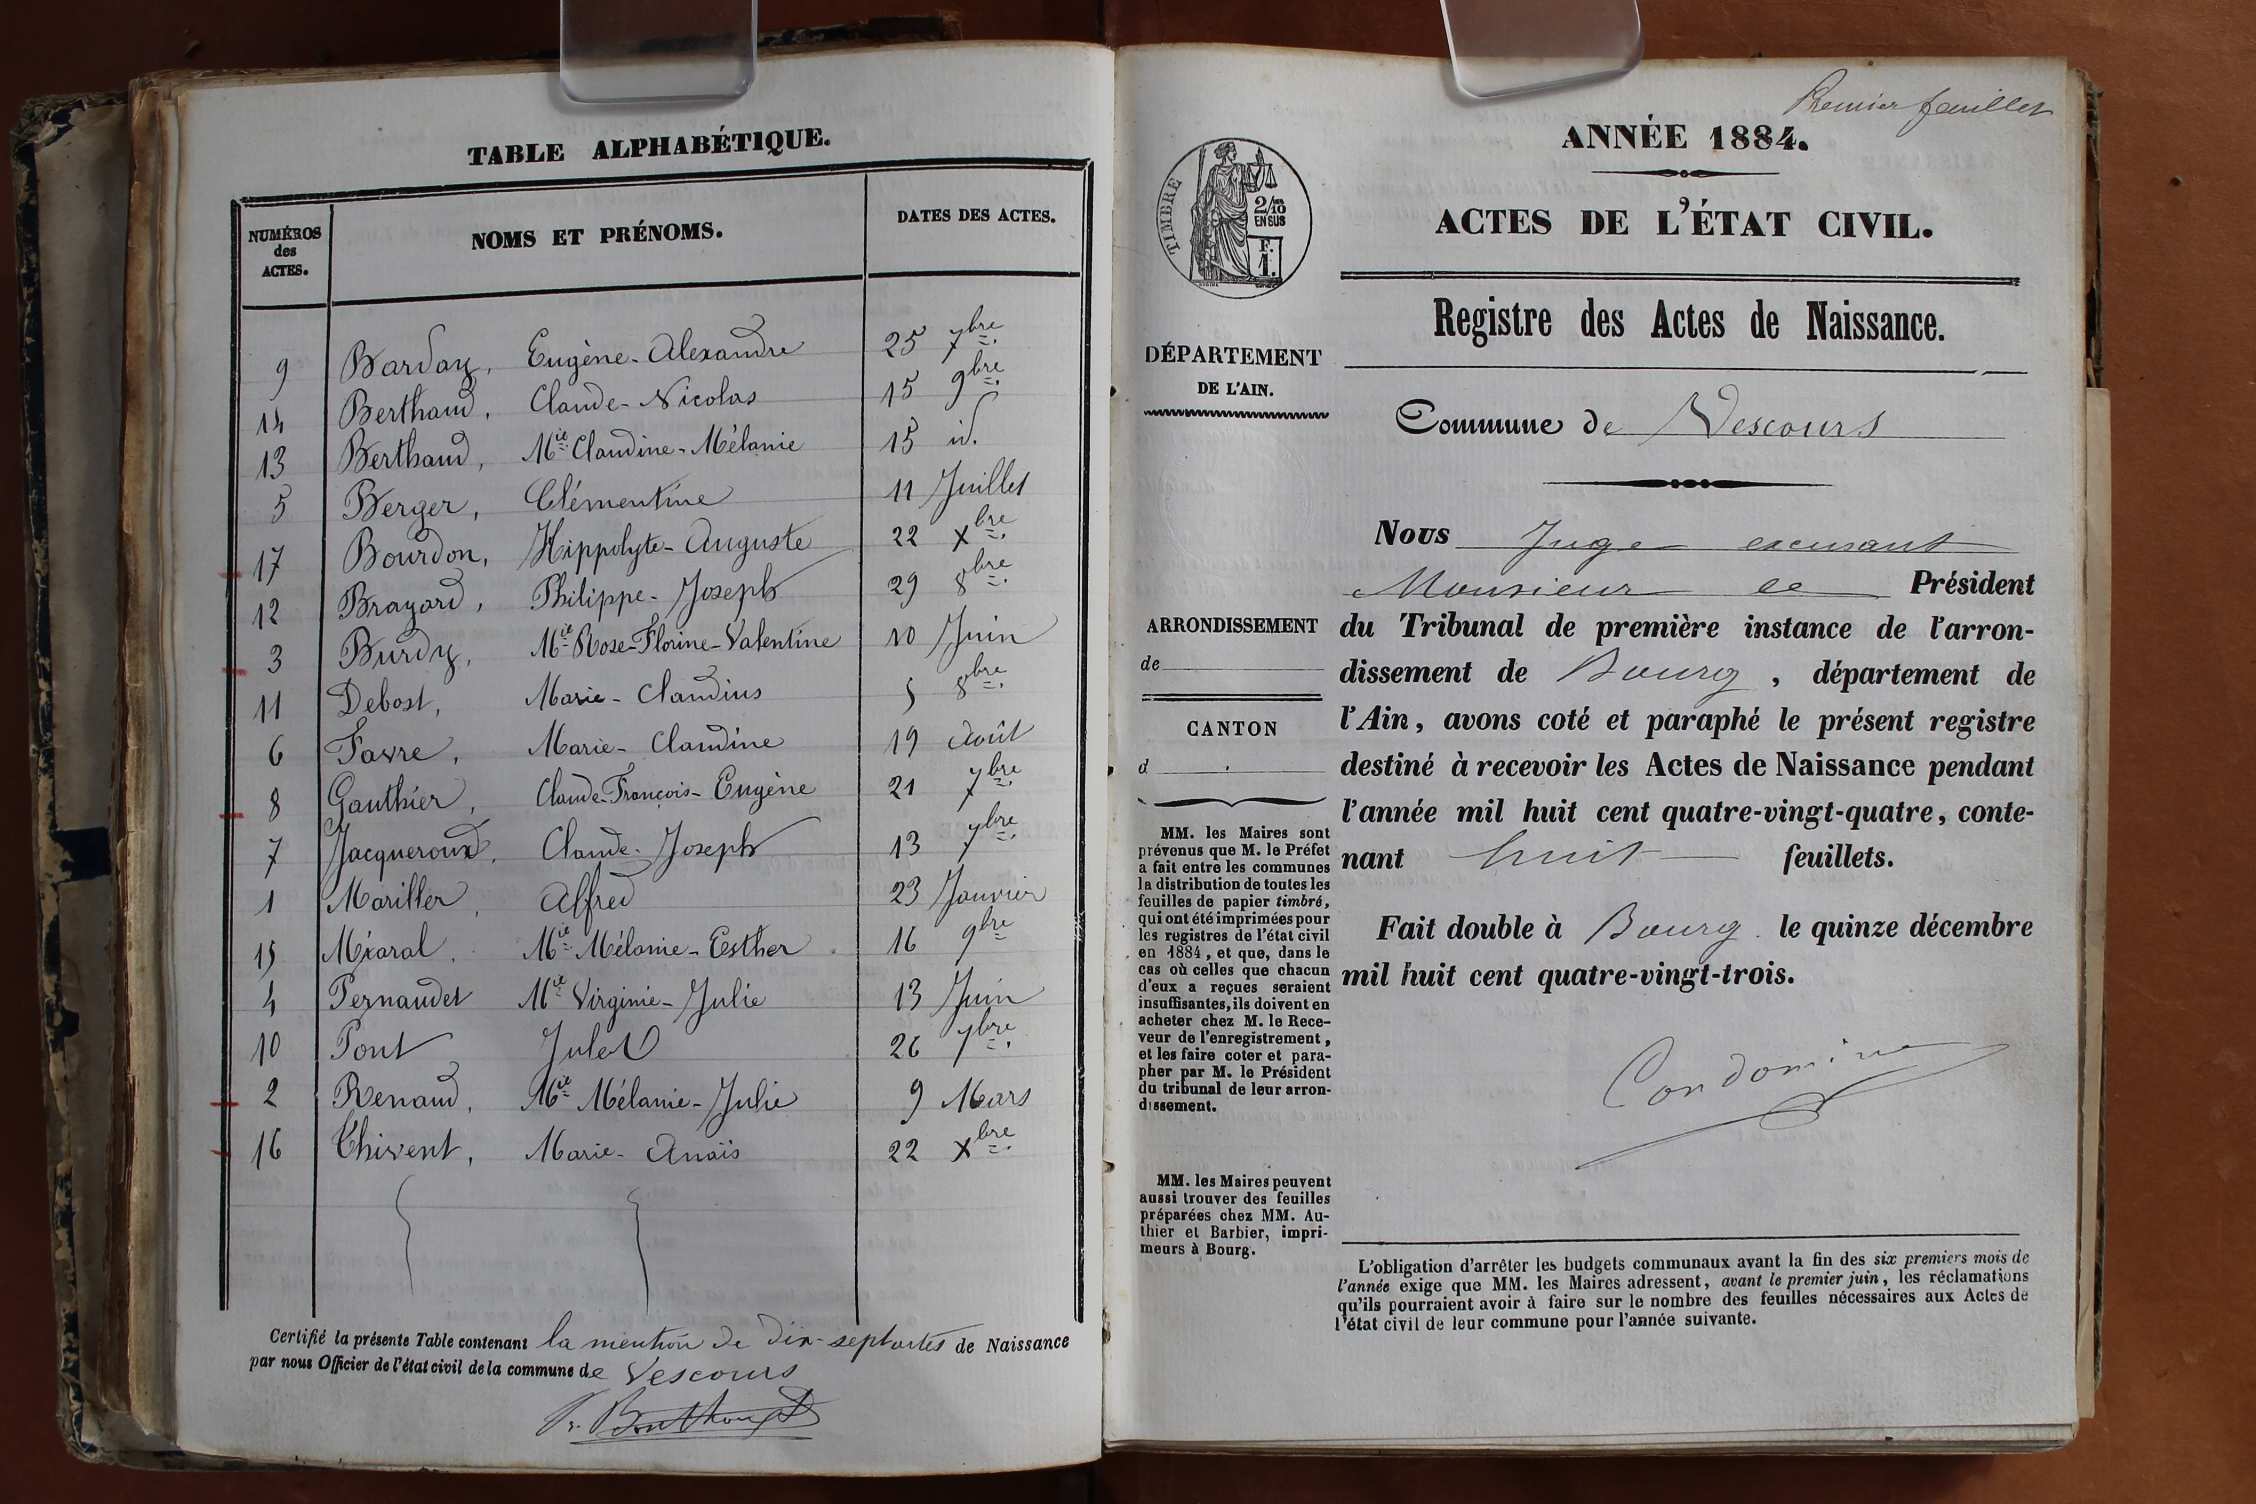 TABLE ALPHABÉTIQUE.
NUMÉROS des ACTES. NOMS ET PRÉNOMS. DATES DES ACTES.
9 Barday, Eugène-Alexandre 25 7bre.
14 Berthaud, Claude-Nicolas 15 9bre.
13 Berthaud, Mie Claudine-Mélanie 15 id.
5 Berger, Clémentine 11 Juillet
17 Bourdon, Hippolyte-Auguste 22 Xbre.
12 Brayard, Philippe-Joseph 29 8bre.
3 Burdy, Mie Rose-Florine-Valentine 10 Juin
11 Debost, Marie-Claudius 5 8bre.
6 Favre, Marie-Claudine 19 Août
8 Gauthier, Claude-François-Eugène 21 7bre.
7 Jacqueroux, Claude-Joseph 13 7bre.
1 Mariller, Alfred 23 Janvier
15 Miaral, Mie Mélanie-Esther 16 9bre
4 Pernaudet Mie Virginie-Julie 13 Juin
10 Pont Jules 26 7bre.
2 Renaud, Mie Mélanie-Julie 9 Mars
16 Thivent, Marie-Anaïs 22 Xbre.
Certifié la présente Table contenant la mention de dix-sept actes de Naissance
par nous Officier de l'état civil de la commune de Vescours
Premier feuillet
ANNÉE 1884.
ACTES DE L'ÉTAT CIVIL.
TIMBRE
2/10
EN SUS
F.
1.
Registre des Actes de Naissance.
DÉPARTEMENT
DE L'AIN.
Commune de Vescours
Nous Juge excusant
Monsieur le Président
du Tribunal de première instance de l'arron-
dissement de Bourg, département de
l'Ain, avons coté et paraphé le présent registre
destiné à recevoir les Actes de Naissance pendant
l'année mil huit cent quatre-vingt-quatre, conte-
nant huit feuillets.
Fait double à Bourg le quinze décembre
mil huit cent quatre-vingt-trois.
Condomine
ARRONDISSEMENT
de
CANTON
d
MM. les Maires sont
prévenus que M. le Préfet
a fait entre les communes
la distribution de toutes les
feuilles de papier timbré,
qui ont été imprimées pour
les registres de l'état civil
en 1884, et que, dans le
cas où celles que chacun
d'eux a reçues seraient
insuffisantes, ils doivent en
acheter chez M. le Rece-
veur de l'enregistrement,
et les faire coter et para-
pher par M. le Président
du tribunal de leur arron-
dissement.
MM. les Maires peuvent
aussi trouver des feuilles
préparées chez MM. Au-
thier et Barbier, impri-
meurs à Bourg.
L'obligation d'arrêter les budgets communaux avant la fin des six premiers mois de
l'année exige que MM. les Maires adressent, avant le premier juin, les réclamations
qu'ils pourraient avoir à faire sur le nombre des feuilles nécessaires aux Actes de
l'état civil de leur commune pour l'année suivante.